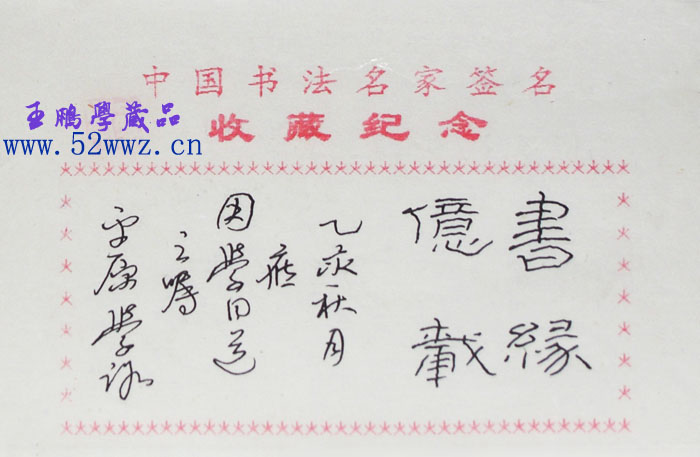 中国书法名家签名
王鵬學藏品
收藏纪念
www.52wwz.cn
書緣
億載
乙亥秋月
應
學同道
之嘱
平原學